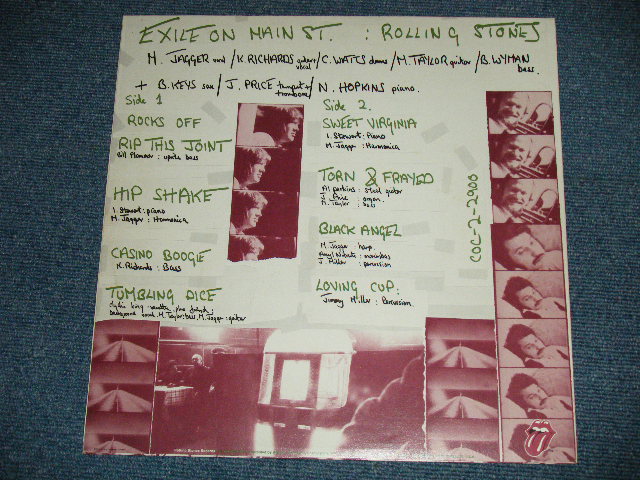 EXILE ON MAIN ST. : ROLLING STONES
M. JAGGER vocal / K. RICHARDS guitar vocal / C. WATTS drums / M. TAYLOR guitar / B. WYMAN bass.
+ B. KEYS sax / J. PRICE trumpet + trombone / N. HOPKINS piano.
Side 1
ROCKS OFF
RIP THIS JOINT
Bill Plummer : uprite bass
HIP SHAKE
I. Stewart : piano
M. Jagger : Harmonica
CASINO BOOGIE
K. Richards : Bass
TUMBLING DICE
M. Taylor : bass, M. Jagger : guitar
Side 2.
SWEET VIRGINIA
I. Stewart : Piano
M. Jagger : Harmonica
TORN & FRAYED
Al perkins : steel guitar
J. Price : organ.
M. Taylor : bass
BLACK ANGEL
M. Jagger harp.
: marimbas
J. Miller : percussion
LOVING CUP :
Jimmy Miller : Percussion.
COC-2-2900
Rolling Stones Records